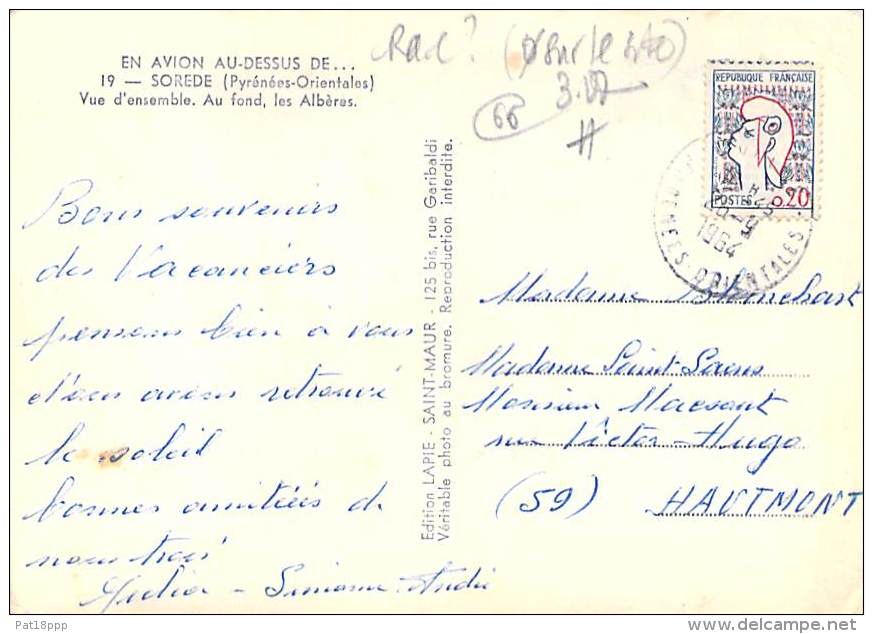 EN AVION AU-DESSUS DE...
19 — SOREDE (Pyrénées-Orientales)
Vue d'ensemble. Au fond, les Albères.
(66)
REPUBLIQUE FRANÇAISE
POSTES 0,20
1964
PYRENEES ORIENTALES
Bons souvenirs
des Vacanciers
pensons bien à vous
avons retrouvé
le soleil
bonnes amitiées de
nous trois
Simone André
Edition LAPIE - SAINT-MAUR - 125 bis, rue Garibaldi
Véritable photo au bromure. Reproduction interdite.
Madame Blanchart
Madame Saint-Saens
Monsieur Macsaut
rue Victor-Hugo
(59) HAUTMONT
Pat18ppp
www.delcampe.net